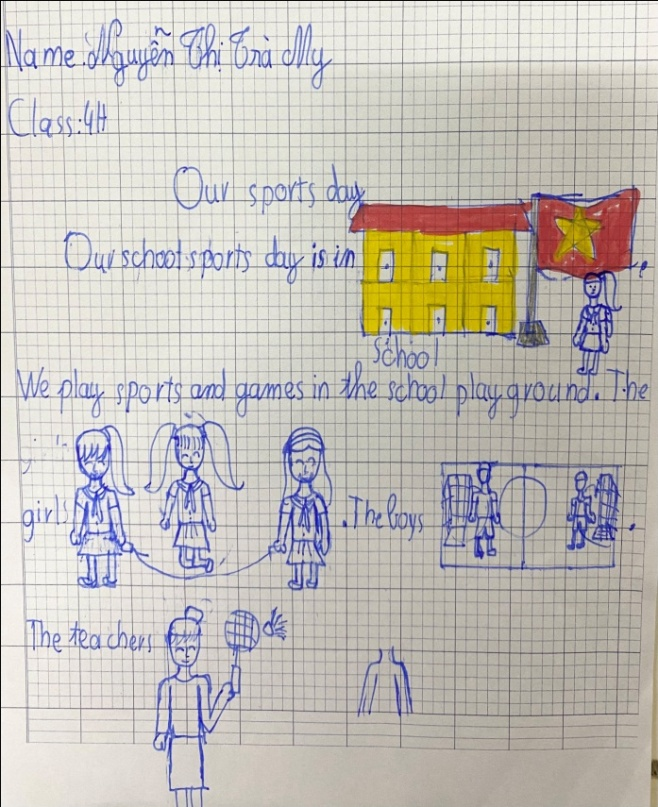 Name: Nguyễn Thị Trà My
Class: 4H
Our sports day
Our school sports day is in
School
We play sports and games in the school playground. The
girls . The boys .
The teachers